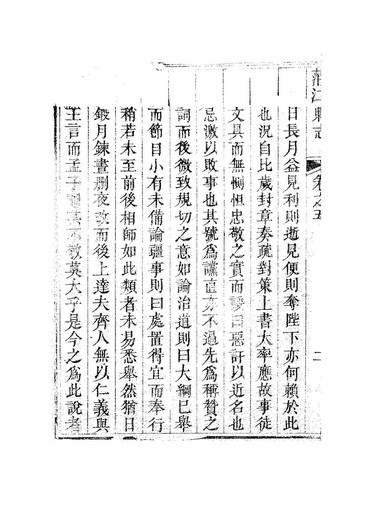 蒲江縣志 卷之五 二
日長月益見利則逝見便則奪陛下亦何賴於此
也況自比歲封章奏疏對策上書大率應故事徒
文具而無惻怛忠敬之實而諉曰惡訐以近名也
忌激以敗事也其號爲讜直亦不過先爲稱贊之
詞而後微致規切之意如論治道則曰大綱已舉
而節目小有未備論疆事則曰處置得宜而奉行
稍若未至前後相師如此類者未易悉舉然猶日
鍛月鍊晝刪夜改而後上達夫齊人無以仁義與
王言而孟子謂其不敬莫大乎是今之爲此說者